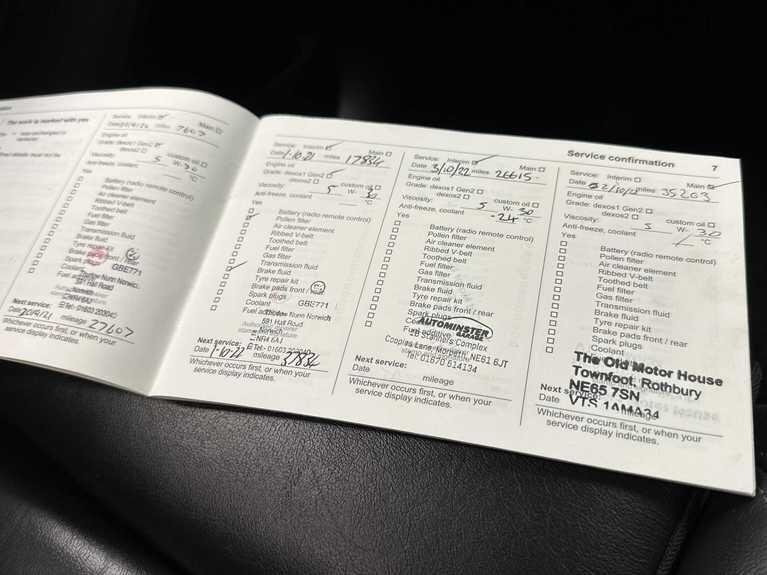 The work is marked with you
Service: Interim
Main
Date miles 7607
Engine oil
Grade: dexos1 Gen2
dexos2
custom oil
Viscosity: 5 W- 30
Anti-freeze, coolant °C
Yes
Battery (radio remote control)
Pollen filter
Air cleaner element
Ribbed V-belt
Toothed belt
Fuel filter
Gas filter
Transmission fluid
Brake fluid
Tyre repair kit
Brake pads front / rear
Spark plugs
GBE771
Coolant
Norwich
Next service:
Date mileage 27607
Whichever occurs first, or when your
service display indicates.
Service: Interim Main
Date 1.10.21 miles 17834
Engine oil
Grade: dexos1 Gen2
dexos2
custom oil
Viscosity: 5 W- 30
Anti-freeze, coolant °C
Yes
Battery (radio remote control)
Pollen filter
Air cleaner element
Ribbed V-belt
Toothed belt
Fuel filter
Gas filter
Transmission fluid
Brake fluid
Tyre repair kit
Brake pads front / rear
Spark plugs
GBE771
Coolant
Fuel additive
Nunn Norwich
Norwich
NR4
Next service:
Date 1-10-22 mileage 37834
Whichever occurs first, or when your
service display indicates.
Service confirmation 7
Service: Interim Main
Date 3/10/22 miles 26615-
Engine oil
Grade: dexos1 Gen2
dexos2
custom oil
Viscosity: 5 W- 30
Anti-freeze, coolant -24 °C
Yes
Battery (radio remote control)
Pollen filter
Air cleaner element
Ribbed V-belt
Toothed belt
Fuel filter
Gas filter
Transmission fluid
Brake fluid
Tyre repair kit
Brake pads front / rear
Spark plugs
Coolant
Fuel additive
AUTOMINSTER
GARAGE
2B Stanners Complex
Coopies Lane, Morpeth, NE61 6JT
Tel: 01670 514134
Next service:
Date mileage
Whichever occurs first, or when your
service display indicates.
Service: Interim Main
Date miles 35203
Engine oil
Grade: dexos1 Gen2
dexos2
custom oil
Viscosity: 5 W- 30
Anti-freeze, coolant °C
Yes
Battery (radio remote control)
Pollen filter
Air cleaner element
Ribbed V-belt
Toothed belt
Fuel filter
Gas filter
Transmission fluid
Brake fluid
Tyre repair kit
Brake pads front / rear
Spark plugs
Coolant
The Old Motor House
Townfoot, Rothbury
NE65 7SN
Next service:
Date mileage
VTS
Whichever occurs first, or when your
service display indicates.